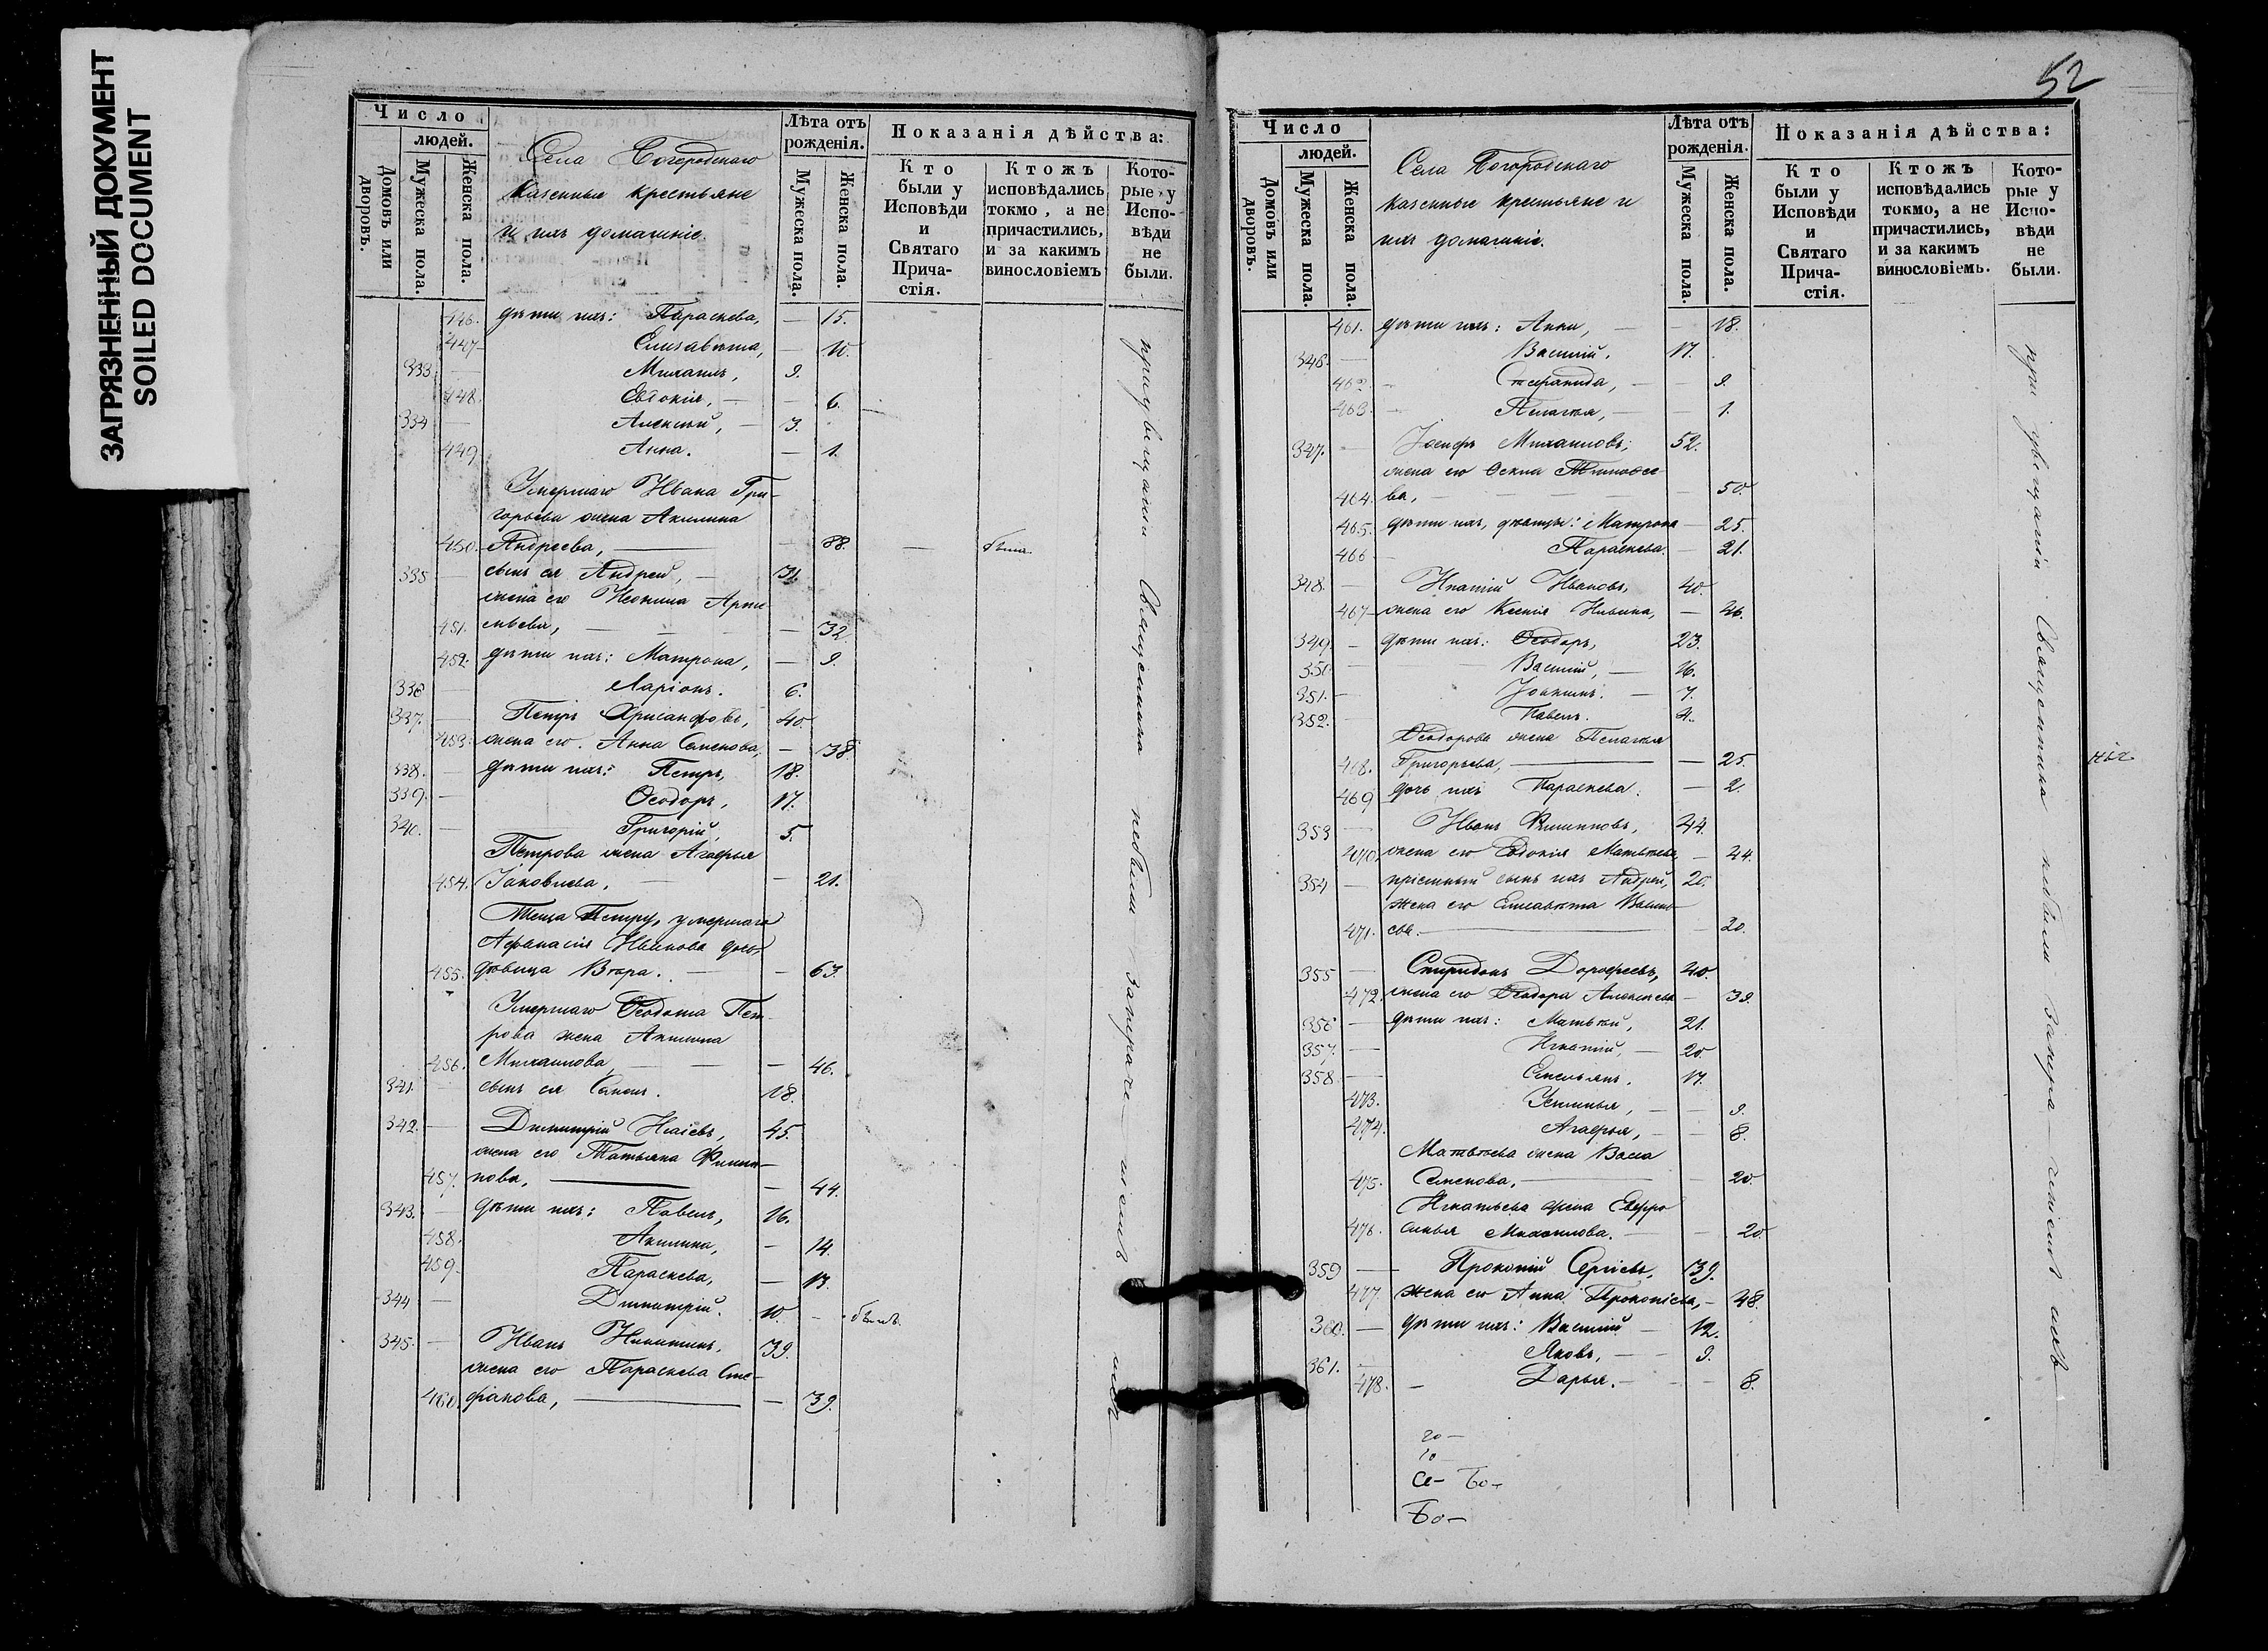 ЗАГРЯЗНЕННЫЙ ДОКУМЕНТ
SOILED DOCUMENT
Число
людей.
Домовъ или дворовъ.
Мужеска пола.
Женска пола.
Села Богородскаго
казенные крестьяне
и ихъ домашніе
Лѣта отъ рожденія.
Мужеска пола.
Женска пола.
Показанія дѣйства:
Кто были у Исповѣди и Святаго Причастія.
Ктожъ исповѣдались токмо, а не причастились, и за какимъ винословіемъ
Которые у Исповѣди не были.
446. дѣти ихъ: Параскева, — 15.
447 Елисавета, — 10.
333. — Михаилъ, 9.
448. Евдокія, — — 6.
334 — Алексѣй, — 3.
449 Анна. — 1.
Умершаго Ивана Гри-
горьева жена Акилина
450. Андреева, — 88. — была
335 — сынъ ея Андрей, — 31.
жена его Неонила Арте
451. мьева, — — 32
452. дѣти ихъ: Матрона, — 9.
336 — Ларіонъ. 6.
337. — Петръ Хрисанфовъ, 40.
453. жена его Анна Семенова, — 38.
338. — дѣти ихъ: Петръ, 18.
339. — Ѳеодоръ, 17.
340. — Григорій, 5.
Петрова жена Агафья
454. Іаковлева. — — 21.
Теща Петру, умершаго
Афанасія Иванова дочь
455. дѣвица Вѣра. — — 63.
Умершаго Ѳеодота Пет-
рова жена Акилина
456. Михаилова, — — 46.
341. — сынъ ея Семенъ. 18.
342. — Димитрій Исаіевъ, 45.
жена его Татьяна Филип-
457. пова, — — 44.
343. — дѣти ихъ: Павелъ, 16.
458. Акилина, — 14.
459. Параскева, — 13.
344 — Димитрій. 10. — былъ
345. — Иванъ Никитинъ, 39.
жена его Параскева Сте-
460. фанова, — — 39.
при увещаніи Священника небыли
52
Число
людей.
Домовъ или дворовъ.
Мужеска пола.
Женска пола.
Села Богородскаго
казенные крестьяне и
ихъ домашніе.
Лѣта отъ рожденія.
Мужеска пола.
Женска пола.
Показанія дѣйства:
Кто были у Исповѣди и Святаго Причастія.
Ктожъ исповѣдались токмо, а не причастились, и за какимъ винословіемъ.
Которые у Исповѣди не были.
461. дѣти ихъ: Анна, — — 18.
346. — Василій. 17.
462. — Степанида, — — 9.
463. — Пелагея, — — 1.
347. — Іосифъ Михаиловъ, 52.
жена его Тимоѳее
464. ва, — — 50.
465. дѣти ихъ, дѣвицы: Матрона — 25.
466 — Параскева. — 21.
348. — Игнатій Ивановъ, 40.
467 — жена его Ксенія — 46.
349. — дѣти ихъ: Ѳеодоръ, 23.
350 — Василій, — 16.
351. — Іоакимъ. — 7.
352. — Павелъ. 4.
Ѳеодорова жена Пелагея
468. Григорьева, — — 25.
469 дочь ихъ Параскева. — 2.
353 — Иванъ Филипповъ, 44.
470. жена его Евдокія Матвѣева, — 44.
354 — пріемный сынъ ихъ Андрей, 20.
жена его Елисавета Василь-
471. ева. — — 20.
355 — Спиридонъ Дороѳеевъ, 40.
472. жена его Ѳеодора Алексѣева — 39.
356 — дѣти ихъ: Матвѣй, 21.
357. — Игнатій, — 20.
358 — Емельянъ. 17.
473. Устинья, — — 9.
474. Агафья, — — 8.
Матвѣева жена Васса
475. Семенова. — — 20.
Игнатьева жена Евфро
476. синья Михаилова. — — 20.
359 — Прокопій Сергіевъ, 39.
477. жена его Анна Прокопіева, — 48.
360. — дѣти ихъ: Василій — 12.
361. — Яковъ, — 9.
478. — Дарья. — — 8.
Се- Бо-
Бо-
при увещаніи Священника небыли